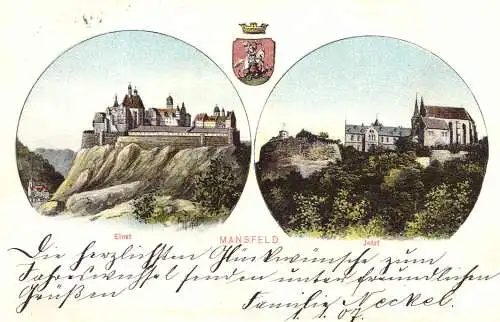 Einst
MANSFELD.
Jetzt
Die herzlichsten Glückwünsche zum
Jahreswechsel senden unter freundlichen
Grüßen
Familie Neckel.
1.1.07